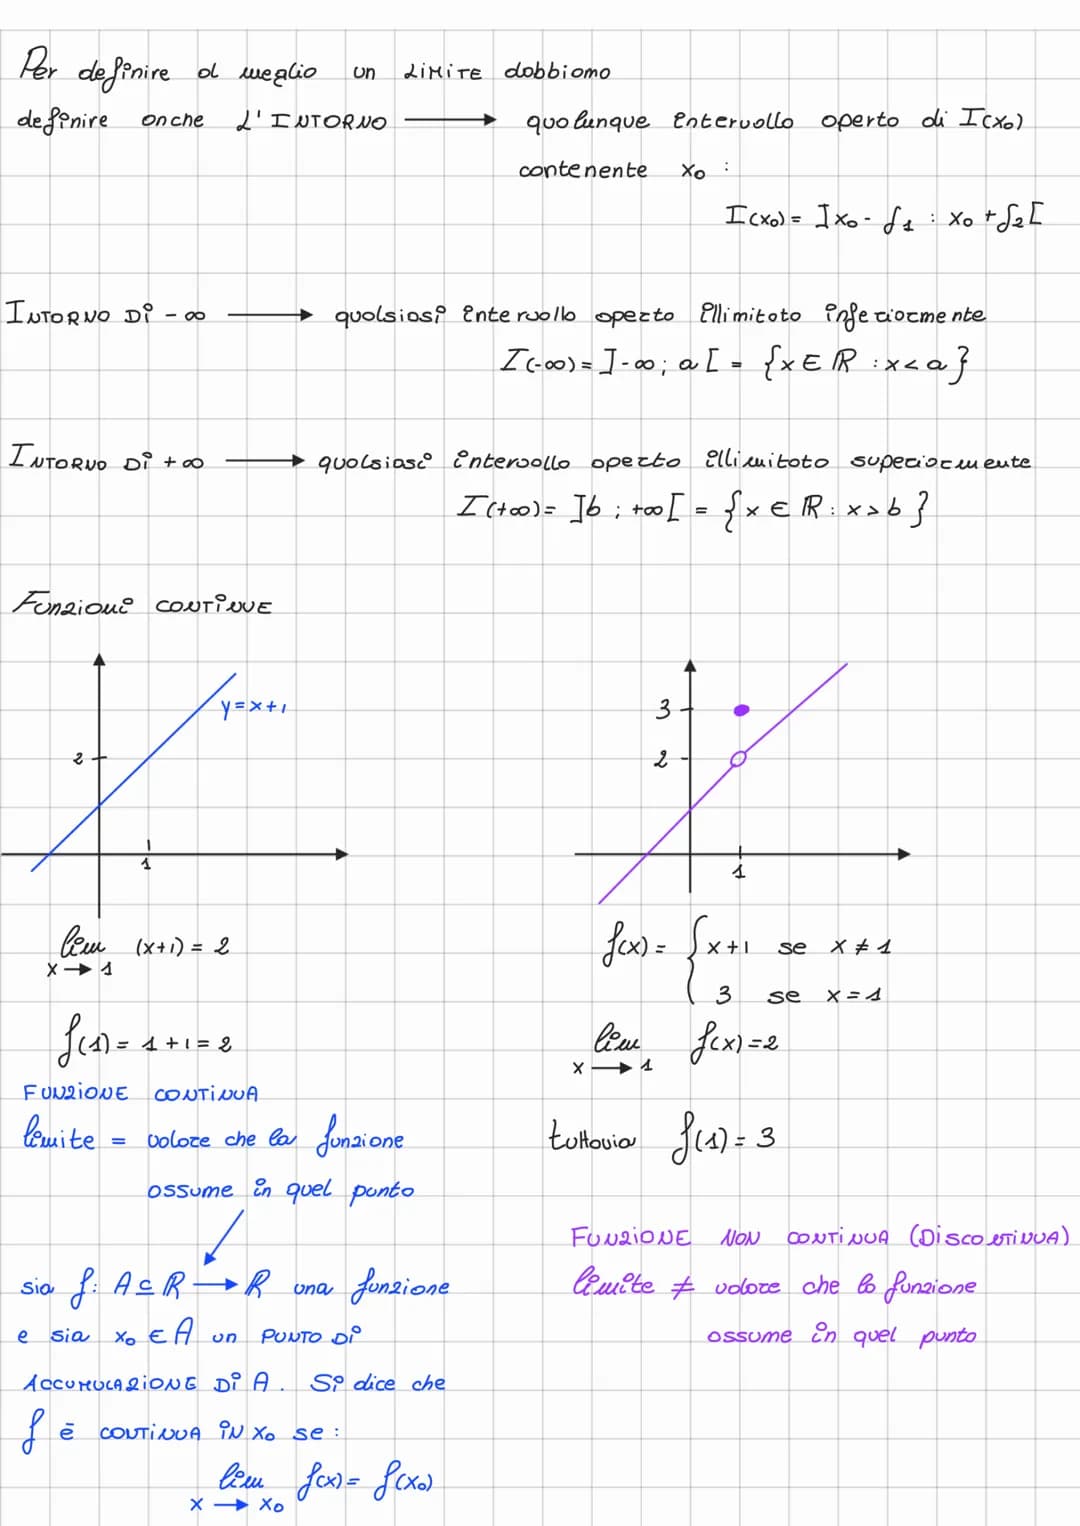 Per definire al meglio un LIMITE dobbiamo
definire anche L'INTORNO → qualunque intervallo aperto di I(x₀)
contenente x₀ :
I(x₀) = ]x₀ - δ₁ : x₀ + δ₂[
INTORNO Di - ∞ → qualsiasi intervallo aperto illimitato inferiormente
I(-∞) = ]-∞ ; a[ = {x ∈ ℝ : x < a}
INTORNO Di + ∞ → qualsiasi intervallo aperto illimitato superiormente
I(+∞) = ]b ; +∞[ = {x ∈ ℝ : x > b}
Funzioni CONTINUE
y = x + 1
2
1
3
2
1
lim (x+1) = 2
x → 1
f(1) = 1 + 1 = 2
FUNZIONE CONTINUA
limite = valore che la funzione
assume in quel punto
sia f: A ⊆ ℝ → ℝ una funzione
e sia x₀ ∈ A un PUNTO Di
ACCUMULAZIONE Di A. Si dice che
f è CONTINUA iN x₀ se :
lim f(x) = f(x₀)
x → x₀
f(x) = { x + 1 se x ≠ 1
3 se x = 1
lim f(x) = 2
x → 1
tuttavia f(1) = 3
FUNZIONE NON CONTINUA (DiscontiNUA)
limite ≠ valore che la funzione
assume in quel punto